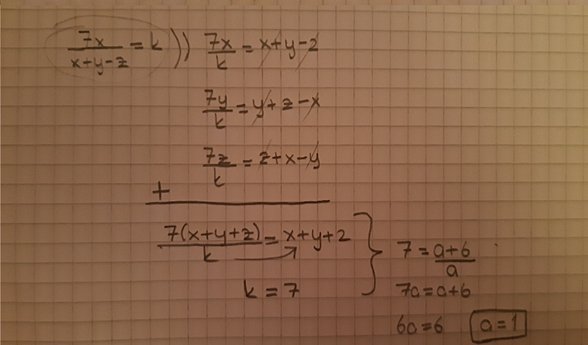 7x/(x+y-z) = k )) 7x/k = x+y-z
7y/k = y+z-x
7z/k = z+x-y
+
7(x+y+z)/k = x+y+z
k = 7
7 = (a+6)/a
7a = a+6
6a = 6 a = 1